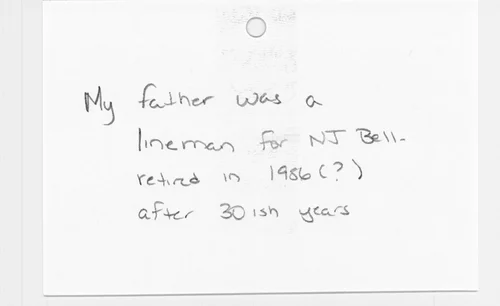 My father was a
lineman for NJ Bell-
retired in 1986(?)
after 30ish years